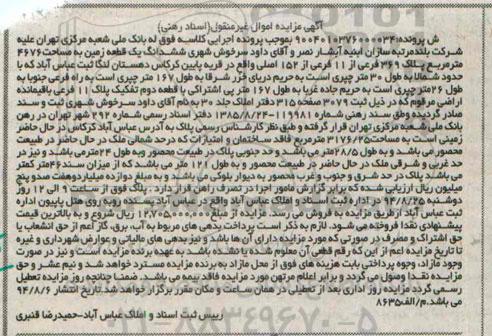 آگهی مزایده اموال غیرمنقول (اسناد رهنی)
ش پرونده: ۹۰۰۴۰۱۰۳۷۶۰۰۰۰۳۴ بموجب پرونده اجرایی کلاسه فوق له بانک ملی شعبه مرکزی تهران علیه
شرکت بلندمرتبه سازان ابنیه آبشار نصر و آقای داود سرخوش شهری ششدانگ یک قطعه زمین به مساحت ۴۶۷۶
مترمربع پلاک ۳۶۹ فرعی از ۱۱ فرعی از ۱۵۲ اصلی واقع در قریه پایین کرکاس دهستان لنگا ثبت عباس آباد که با
حدود شمالا به طول ۳۰ متر چپری است به حریم دریای خزر شرقا به طول ۱۶۷ متر چپری است به راه فرعی جنوبا به
طول ۲۶ متر چپری است به حریم جاده غربا به طول ۱۶۷ متر پی اشتراکی با قطعه دوم تفکیک پلاک ۱۱ فرعی باقیمانده
اراضی مرقوم که در ذیل ثبت ۳۰۷۹ صفحه ۳۱۵ دفتر املاک جلد ۳۰ به نام آقای داود سرخوش شهری ثبت و سند
صادر گردیده وطق سند رهنی شماره ۱۱۹۹۸۱-۱۳۸۵/۸/۲۴ دفتر اسناد رسمی شماره ۲۹۲ شهر تهران در رهن
بانک ملی شعبه مرکزی تهران قرار گرفته و طبق نظر کارشناس رسمی پلاک به آدرس عباس آباد کرکاس در حال حاضر
زمینی است به مساحت ۳۱۷۶/۲۵ مترمربع فاقد ساختمان و امتیازات که درحد شمالی ملک در حال حاضر در طبیعت
محصور می باشد و به طول ۲۸/۵ متر می باشد و حد جنوبی پلاک در طبیعت محصور وبه طول ۲۴ متر می باشد و نیز در
حد غربی و شرقی ملک در حال حاضر در طبیعت محصور و به طول ۱۲۱ متر می باشد که از میزان سند ۴۶ متر کمتر
می باشد پلاک در حد شرق و جنوب و غرب محصور به دیوار بلوکی می باشد و به مبلغ دوازده میلیاردوهفت صدو پنج
میلیون ریال ارزیابی شده که برابر گزارش مامور اجرا در تصرف راهن قرار دارد. پلاک فوق از ساعت ۹ الی ۱۲ روز
دوشنبه ۹۴/۸/۲۵ در اداره ثبت اسناد و املاک عباس آباد واقع در عباس آباد پسنده روبه روی هتل پاپیون اداره
ثبت عباس آباد ازطریق مزایده به فروش می رسد. مزایده از مبلغ ۱۲,۷۰۵,۰۰۰,۰۰۰ ریال شروع و به بالاترین قیمت
پیشنهادی نقدا فروخته می شود. لازم به ذکر است پرداخت بدهی های مربوط به آب، برق، گاز اعم از حق انشعاب یا
حق اشتراک و مصرف در صورتی که مورد مزایده دارای آن ها باشد و نیز بدهی های مالیاتی و عوارض شهرداری و غیره
تا تاریخ مزایده اعم از این که رقم قطعی آن معلوم شده یا نشده باشد به عهده برنده مزایده است و نیز در صورت
وجود مازاد، وجوه پرداختی بابت هزینه های فوق از محل مازاد به برنده مزایده مسترد خواهد شد و نیم عشر و حق
مزایده نقدا وصول می گردد و برابر اعلام مرتهن مورد مزایده فاقد بیمه می باشد. ضمنا چنانچه روز مزایده تعطیل
رسمی گردد مزایده روز اداری بعد از تعطیلی در همان ساعت و مکان مقرر برگزار خواهد شد تاریخ انتشار ۹۴/۸/۶
می باشد.م/الف ۸۶۳۵
رییس ثبت اسناد و املاک عباس آباد-حمیدرضا قنبری